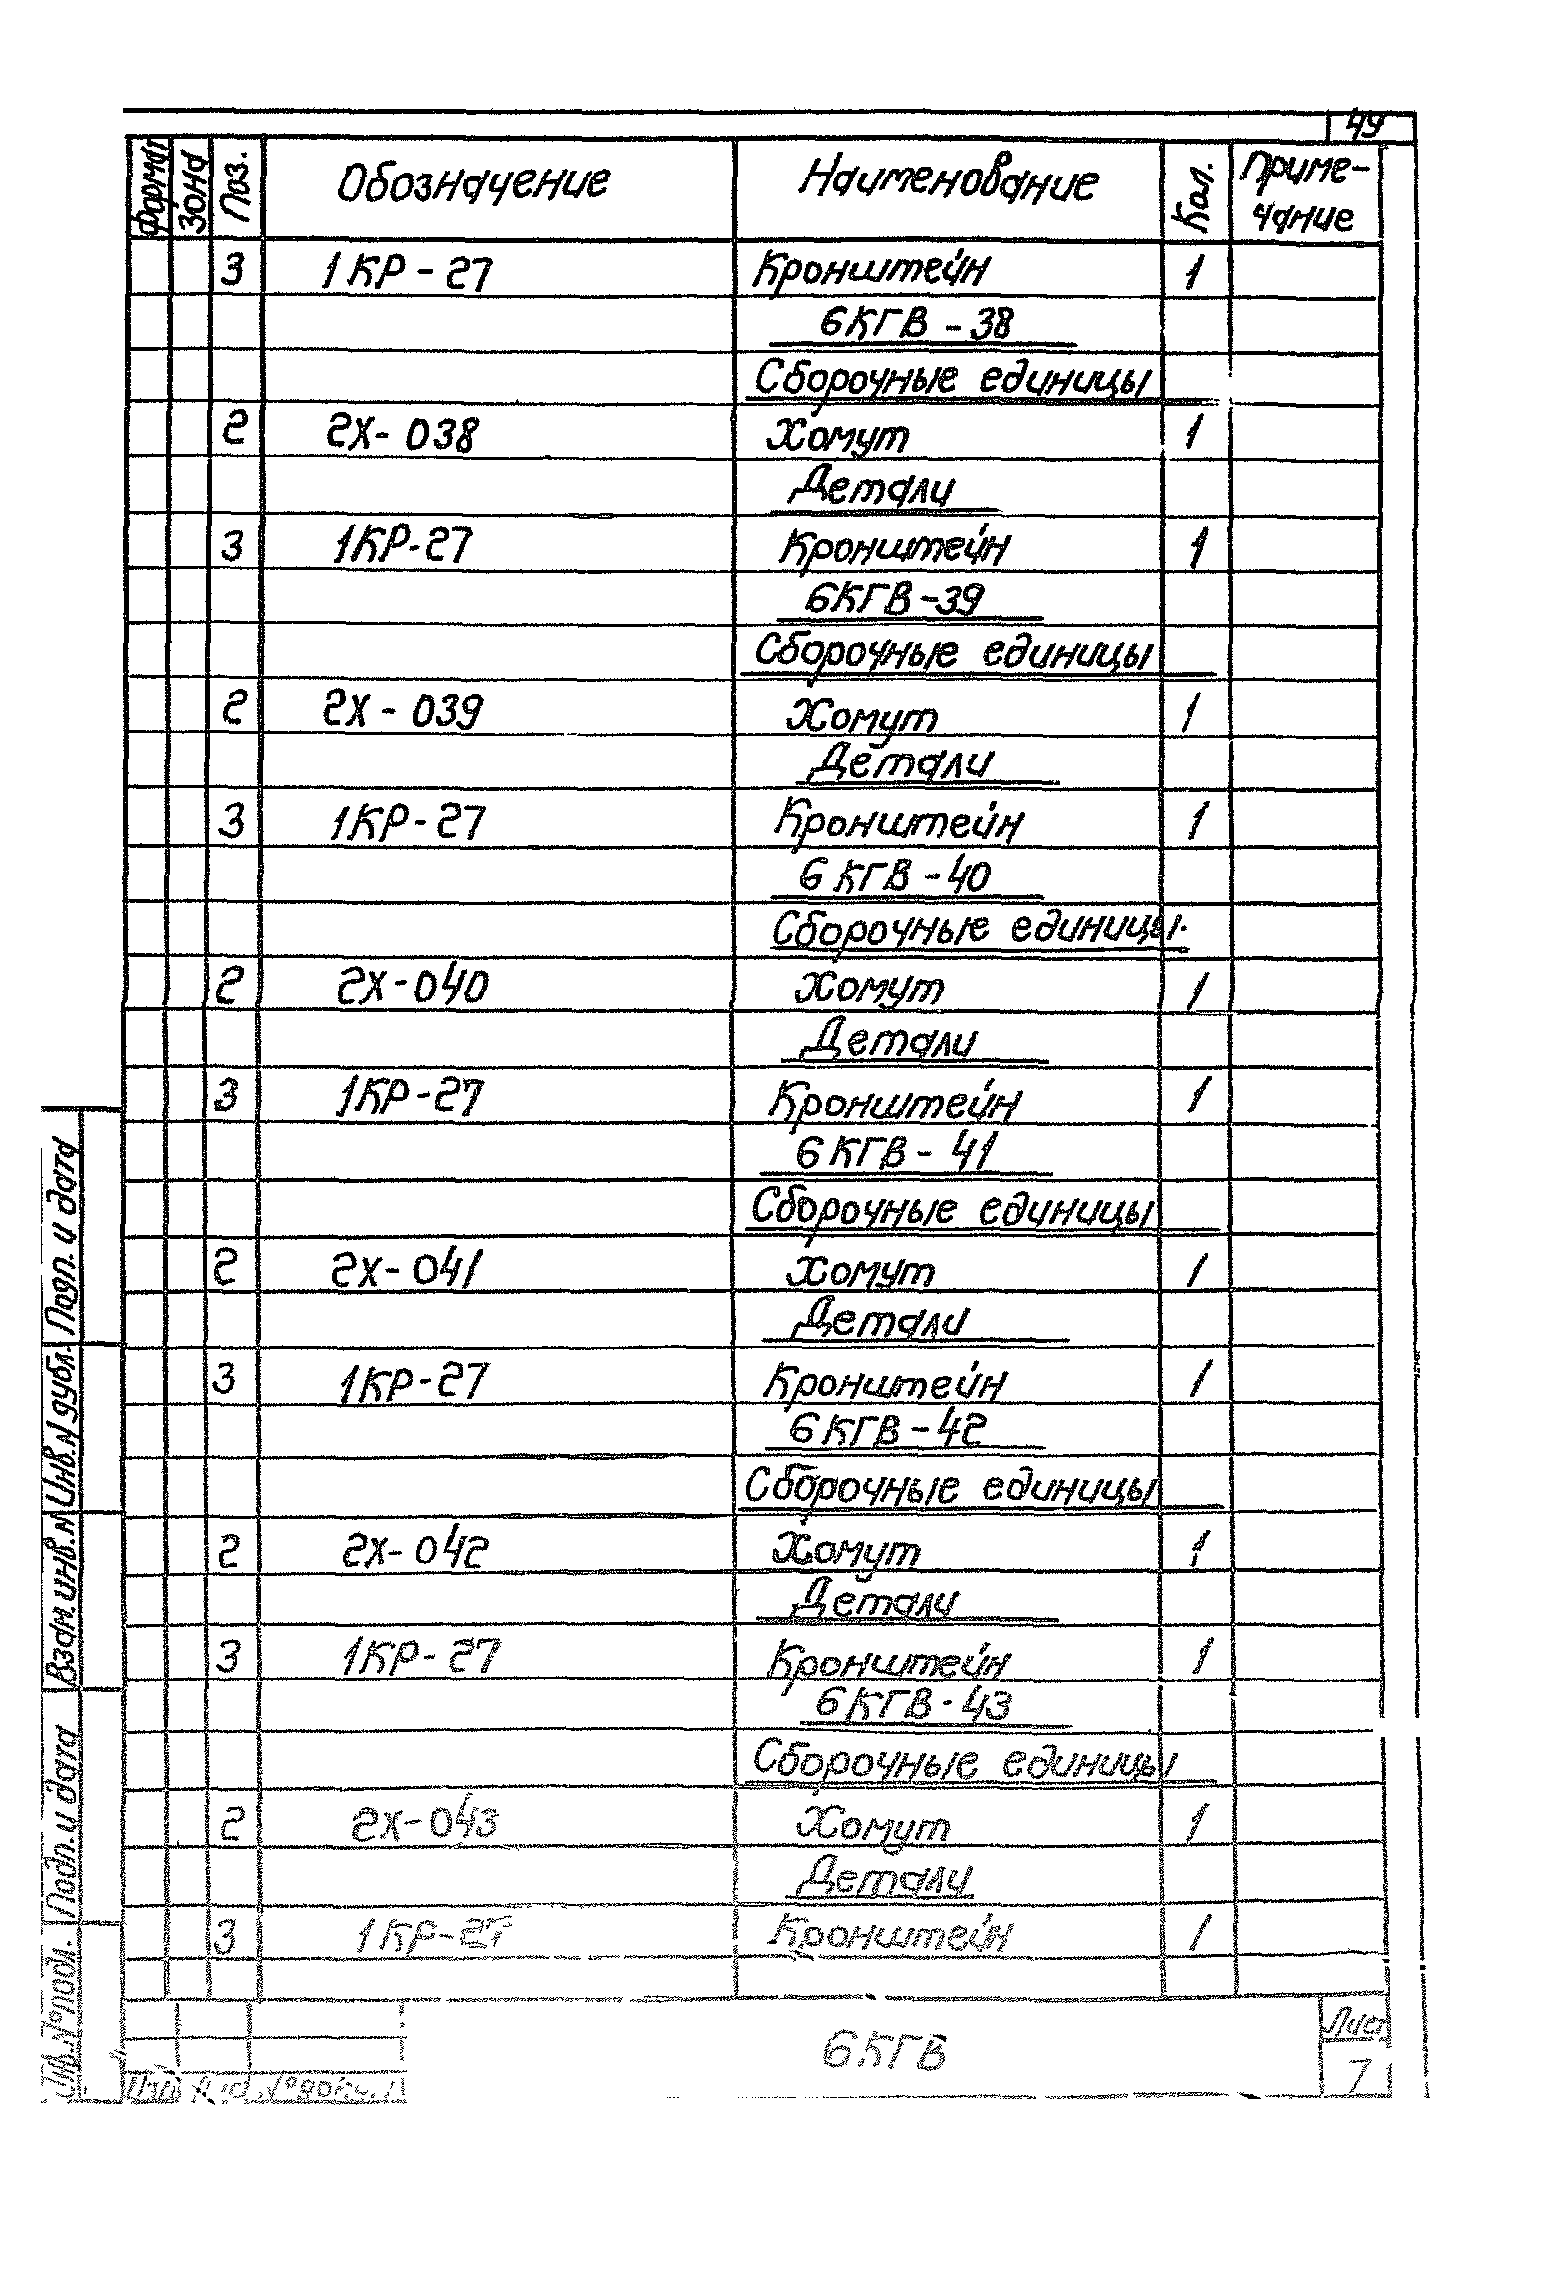 49
Формат Зона Поз. Обозначение Наименование Кол. Приме-
чание
3 1КР-27 Кронштейн 1
6КГВ-38
Сборочные единицы
2 2Х-038 Хомут 1
Детали
3 1КР-27 Кронштейн 1
6КГВ-39
Сборочные единицы
2 2Х-039 Хомут 1
Детали
3 1КР-27 Кронштейн 1
6КГВ-40
Сборочные единицы.
2 2Х-040 Хомут 1
Детали
3 1КР-27 Кронштейн 1
6КГВ-41
Сборочные единицы
2 2Х-041 Хомут 1
Детали
3 1КР-27 Кронштейн 1
6КГВ-42
Сборочные единицы
2 2Х-042 Хомут 1
Детали
3 1КР-27 Кронштейн 1
6КГВ-43
Сборочные единицы
2 2Х-043 Хомут 1
Детали
3 1КР-27 Кронштейн 1
Подп. и дата
Инв.N дубл.
Взам.инв.N
Подп. и дата
Инв.N°подл.
6КГВ
Лист
7